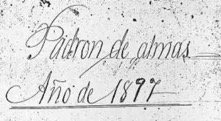 Padron de almas
Año de 1897